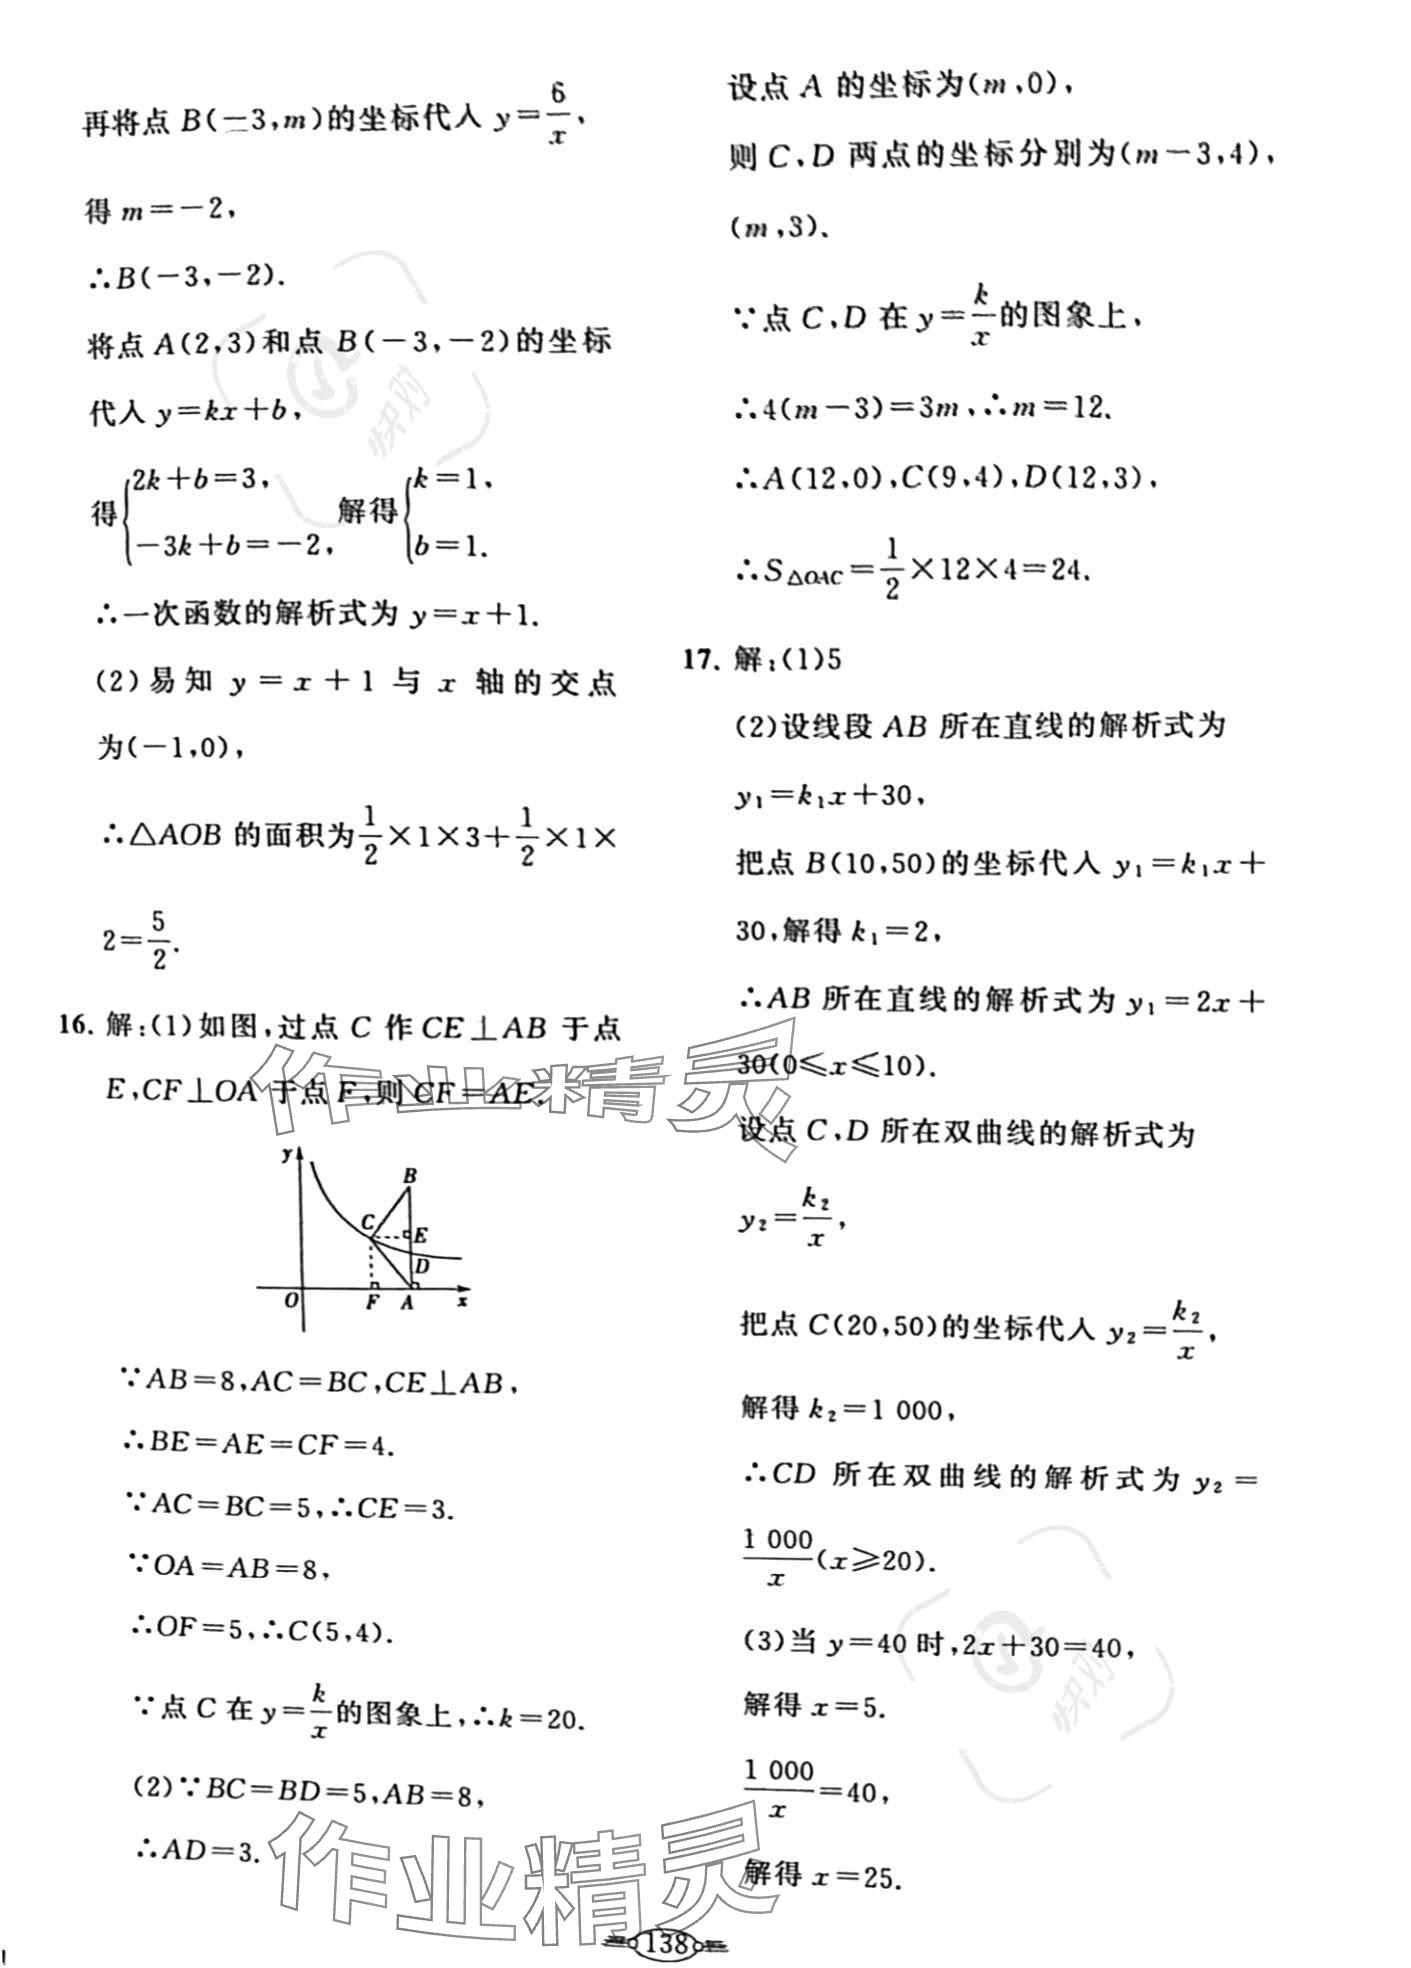 再将点 B(−3,m)的坐标代入 y=6/x,
得 m=−2,
∴B(−3,−2).
将点 A(2,3)和点 B(−3,−2)的坐标
代入 y=kx+b,
得{2k+b=3, −3k+b=−2, 解得{k=1, b=1.
∴一次函数的解析式为 y=x+1.
(2)易知 y=x+1 与 x 轴的交点
为(−1,0),
∴△AOB 的面积为1/2×1×3+1/2×1×
2=5/2.
16. 解:(1)如图,过点 C 作 CE⊥AB 于点
E,CF⊥OA 于点 F,则 CF=AE.
y
B
C
E
D
O F A x
∵AB=8,AC=BC,CE⊥AB,
∴BE=AE=CF=4.
∵AC=BC=5,∴CE=3.
∵OA=AB=8,
∴OF=5,∴C(5,4).
∵点 C 在 y=k/x的图象上,∴k=20.
(2)∵BC=BD=5,AB=8,
∴AD=3.
设点 A 的坐标为(m,0),
则 C、D 两点的坐标分别为(m−3,4),
(m,3).
∵点 C、D 在 y=k/x的图象上,
∴4(m−3)=3m,∴m=12.
∴A(12,0),C(9,4),D(12,3),
∴S△OAC=1/2×12×4=24.
17. 解:(1)5
(2)设线段 AB 所在直线的解析式为
y₁=k₁x+30,
把点 B(10,50)的坐标代入 y₁=k₁x+
30,解得 k₁=2,
∴AB 所在直线的解析式为 y₁=2x+
30(0≤x≤10).
设点 C、D 所在双曲线的解析式为
y₂=k₂/x,
把点 C(20,50)的坐标代入 y₂=k₂/x,
解得 k₂=1 000,
∴CD 所在双曲线的解析式为 y₂=
1 000/x(x≥20).
(3)当 y=40 时,2x+30=40,
解得 x=5.
1 000/x=40,
解得 x=25.
138
作业精灵
作业精灵
快对
快对